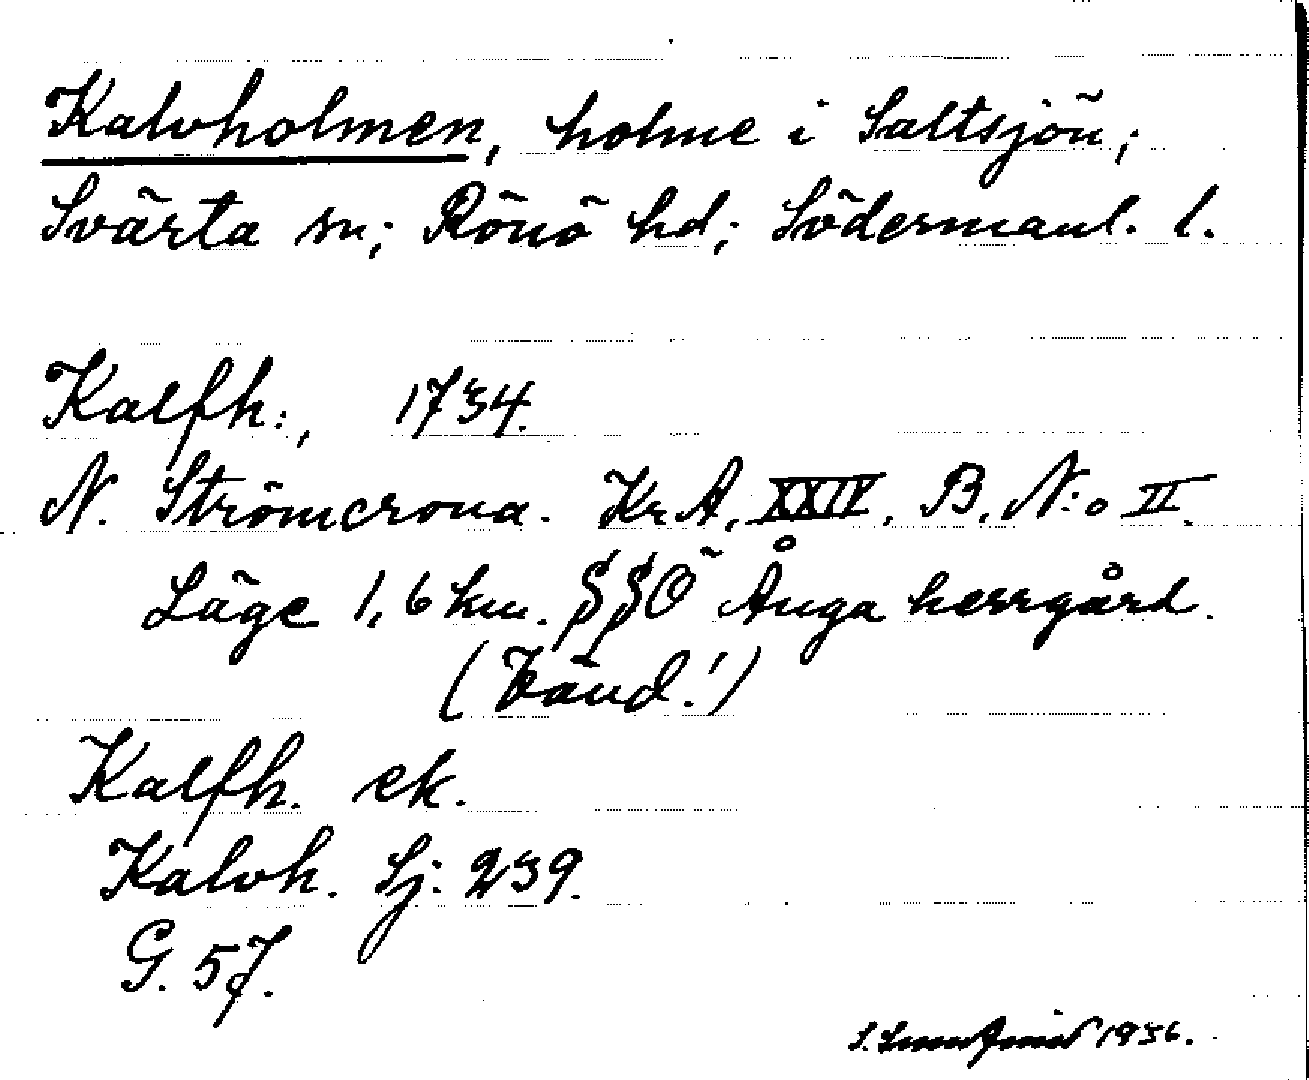 Kalvholmen, holme i Saltsjön;
Svärta sn; Rönö hd; Södermanl. l.
Kalfh:, 1734.
N. Strömcrona. Kr A. XXIV. B. N:o II.
Läge 1,6 km. SSÖ Ånga herrgård.
(Vänd!)
Kalfh. ek.
Kalvh. Sj: 239.
G. 57.
S. 1936.